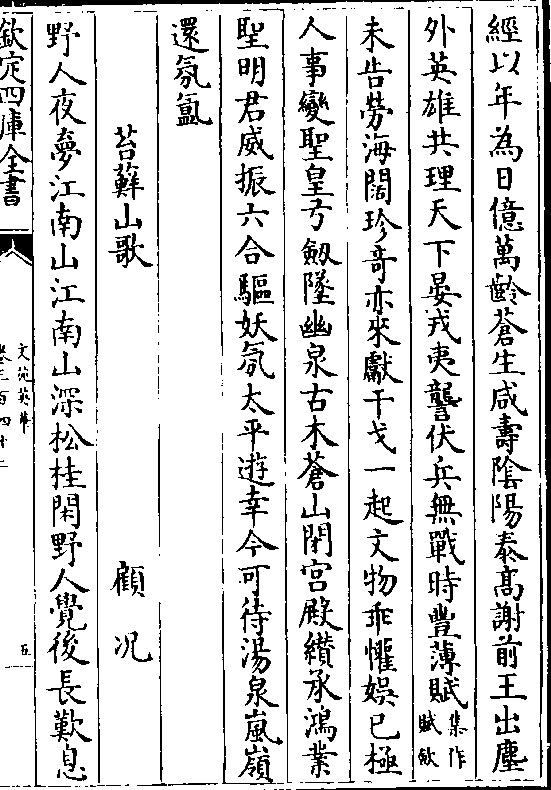 經以年為日億萬齡蒼生咸壽陰陽泰髙謝前王出塵
外英雄共理天下晏戎夷讋伏兵無戰時豐薄賦集作賦歛
未告勞海闊珍竒亦來獻干戈一起文物乖懽娯已極
人事變聖皇弓劔墜幽泉古木蒼山閉宫殿纉承鴻業
聖明君威振六合驅妖氛太平遊幸今可待湯泉嵐嶺
還氛氲
苔蘚山歌 顧况
野人夜夢江南山江南山深松桂閑野人覺後長歎息
欽定四庫全書
文苑英華
卷三百四十二
五